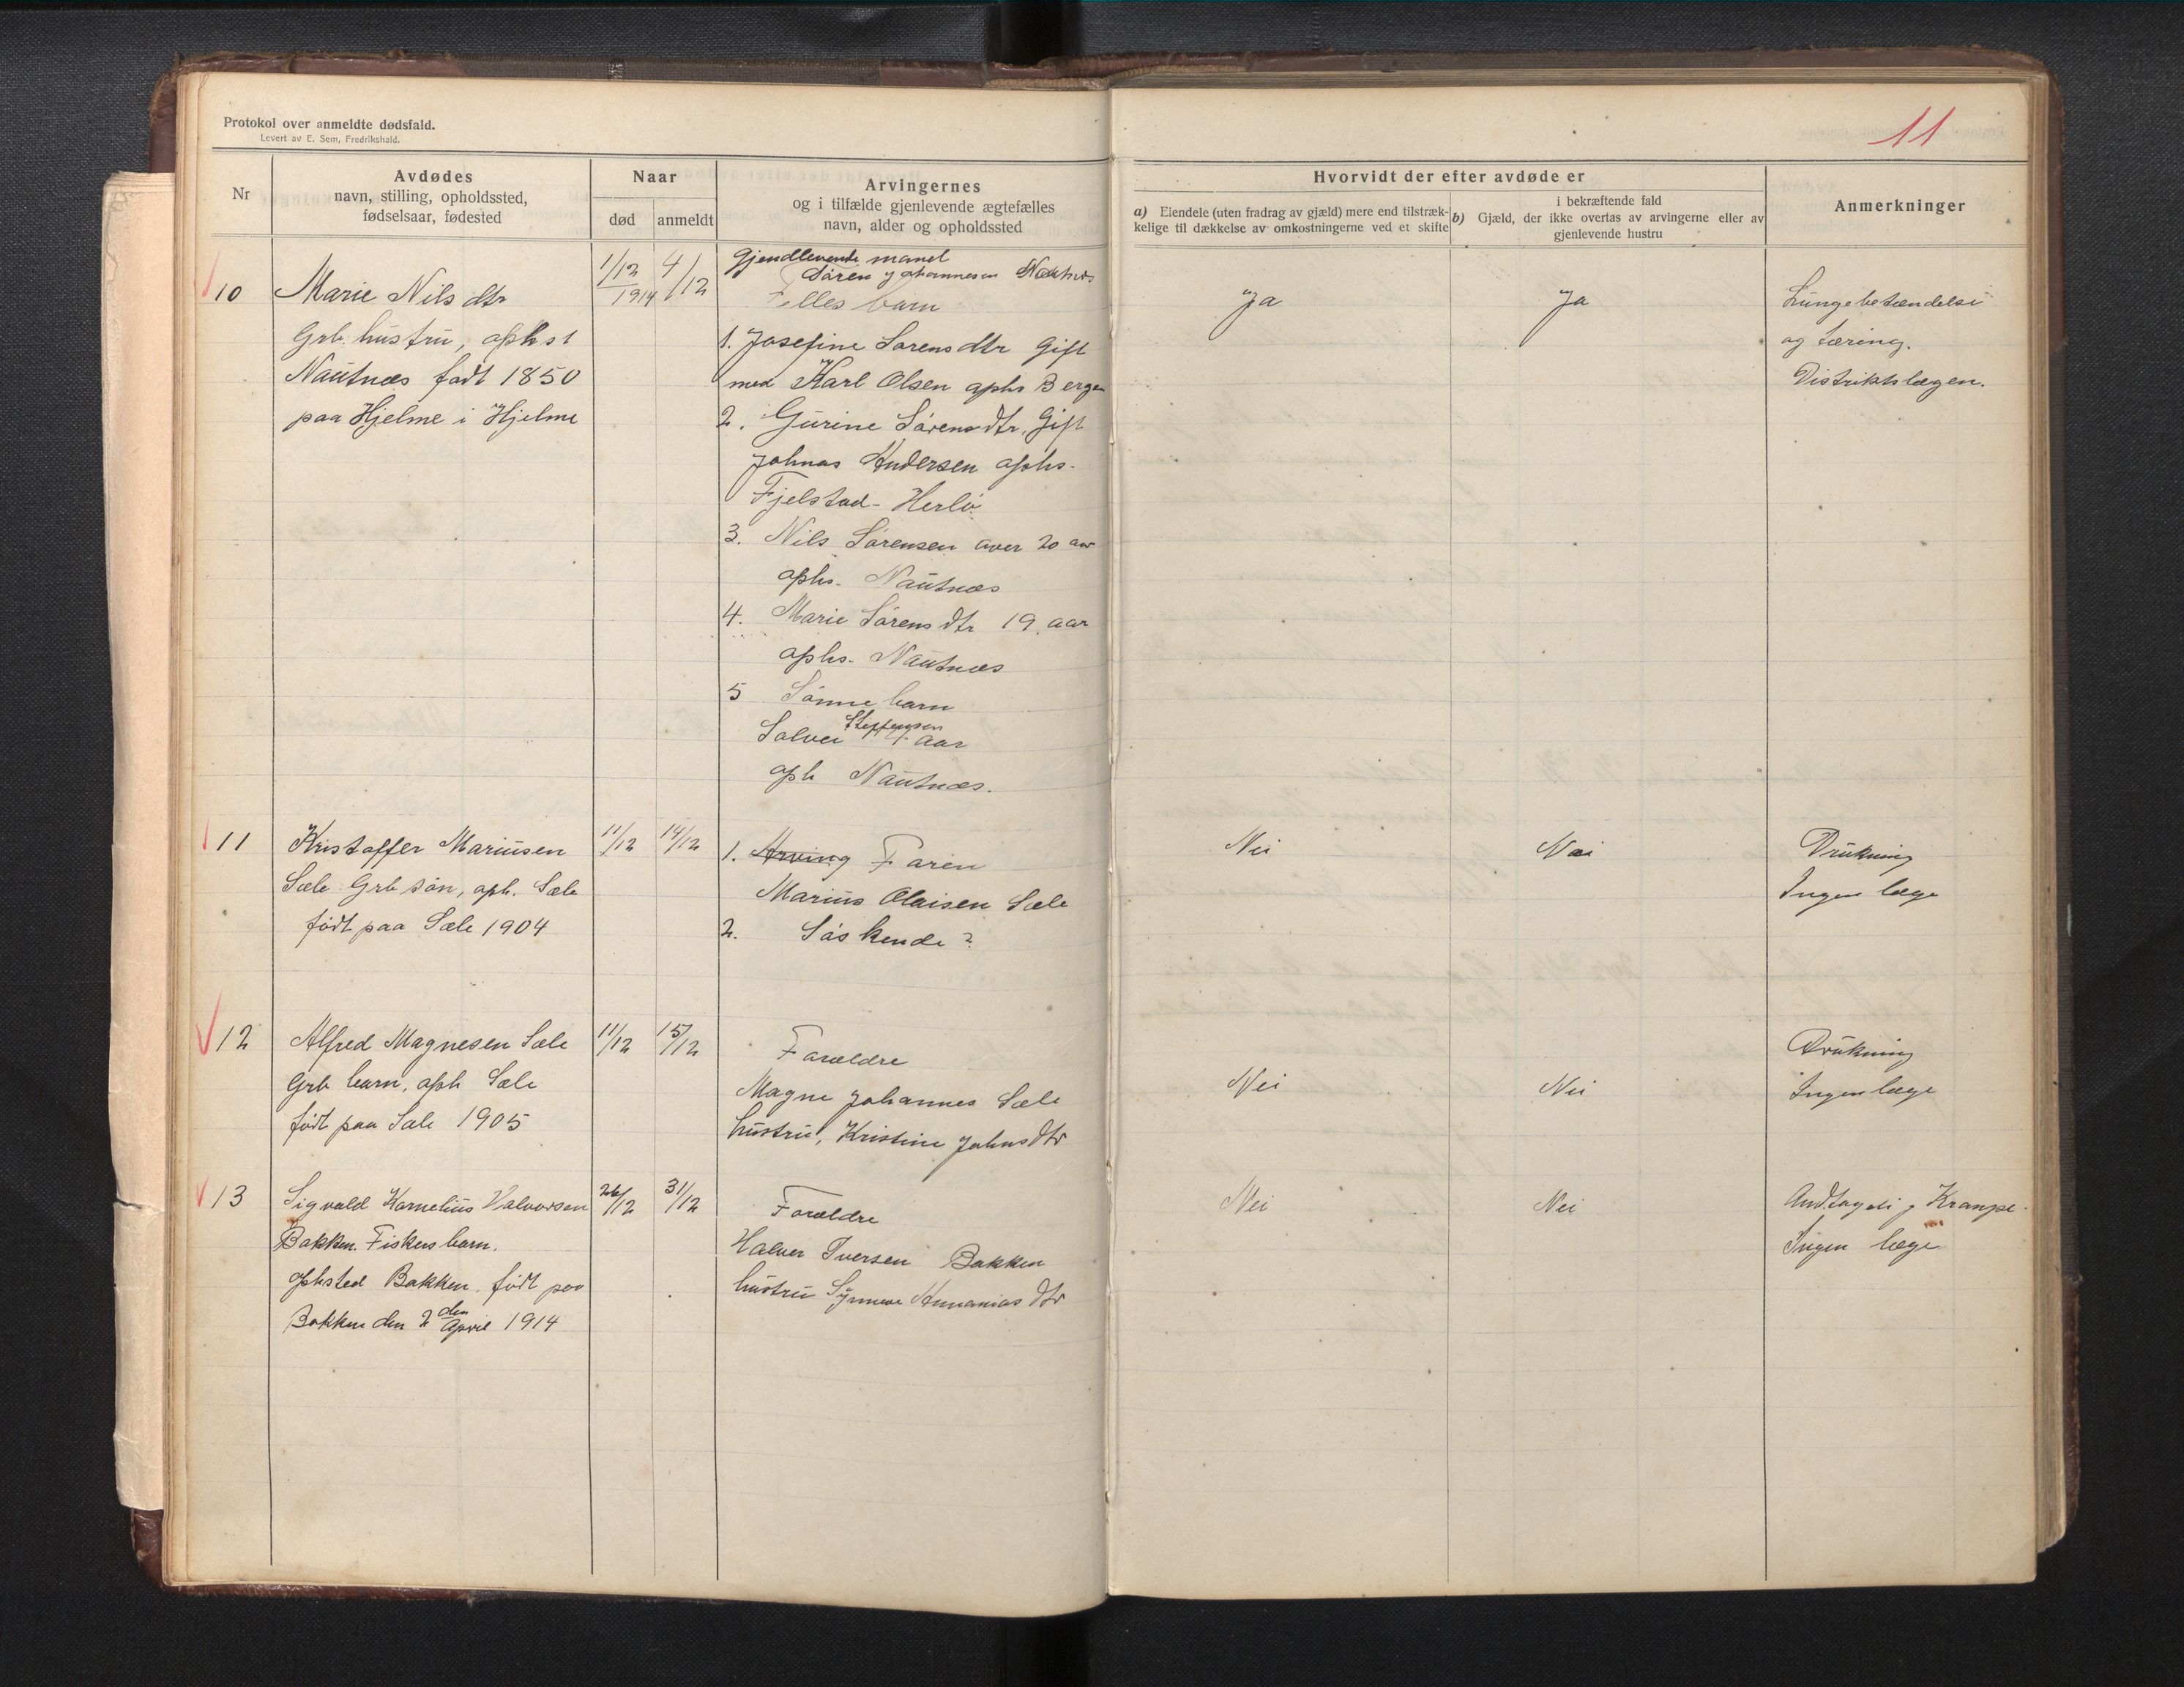 Protokol over anmeldte dødsfald.
Levert av E. Sem, Fredrikshald.
11
Nr
Avdødes
navn, stilling, opholdssted,
fødselsaar, fødested
Naar
død
anmeldt
Arvingernes
og i tilfælde gjenlevende ægtefælles
navn, alder og opholdssted
Hvorvidt der efter avdøde er
a) Eiendele (uten fradrag av gjæld) mere end tilstræk-
kelige til dækkelse av omkostningerne ved et skifte
i bekræftende fald
b) Gjæld, der ikke overtas av arvingerne eller av
gjenlevende hustru
Anmerkninger
10
Marie Nils dtr
Grb. hustru, ophst
Nautnæs født 1850
paa Hjelme i Hjelme
1/12
1914
4/12
Gjendlevende mand
Søren Johannesen Nautnæs
Felles barn
1. Josefine Sørens dtr Gift
med Karl Olsen ophs Bergen
2. Gurine Sørens dtr, Gift
Johnas Andersen ophs.
Fjelstad - Herlø
3. Nils Sørensen over 20 aar
ophs. Nautnæs
4. Marie Sørens dtr 19. aar
ophs. Nautnæs
5 Sønne barn
Steffensen
Salvei aar
oph Nautnæs.
Ja
Ja
Lungebetændelse
og tæring.
Distriktslægen.
11
Kristoffer Mariusen
Sæle Grb søn, oph. Sæle
født paa Sæle 1904
11/12
14/12
1. Arving Faren
Marius Olaisen Sæle
2. Søskende ?
Nei
Nei
Drukning
Ingen læge
12
Alfred Magnesen Sæle
Grb barn, oph Sæle
født paa Sæle 1905
11/12
15/12
Forældre
Magne Johannes Sæle
hustru, Kristine Johns dtr
Nei
Nei
Drukning
Ingen læge
13
Sigvald Kornelius Halvorsen
Bakken. Fiskers barn.
Ophsted Bakken. født paa
Bakken den 2 den April 1914
26/12
31/12
Forældre
Halvor Iversen Bakken
hustru Synneve Annanias dtr
Nei
Nei
Krampe.
Ingen læge